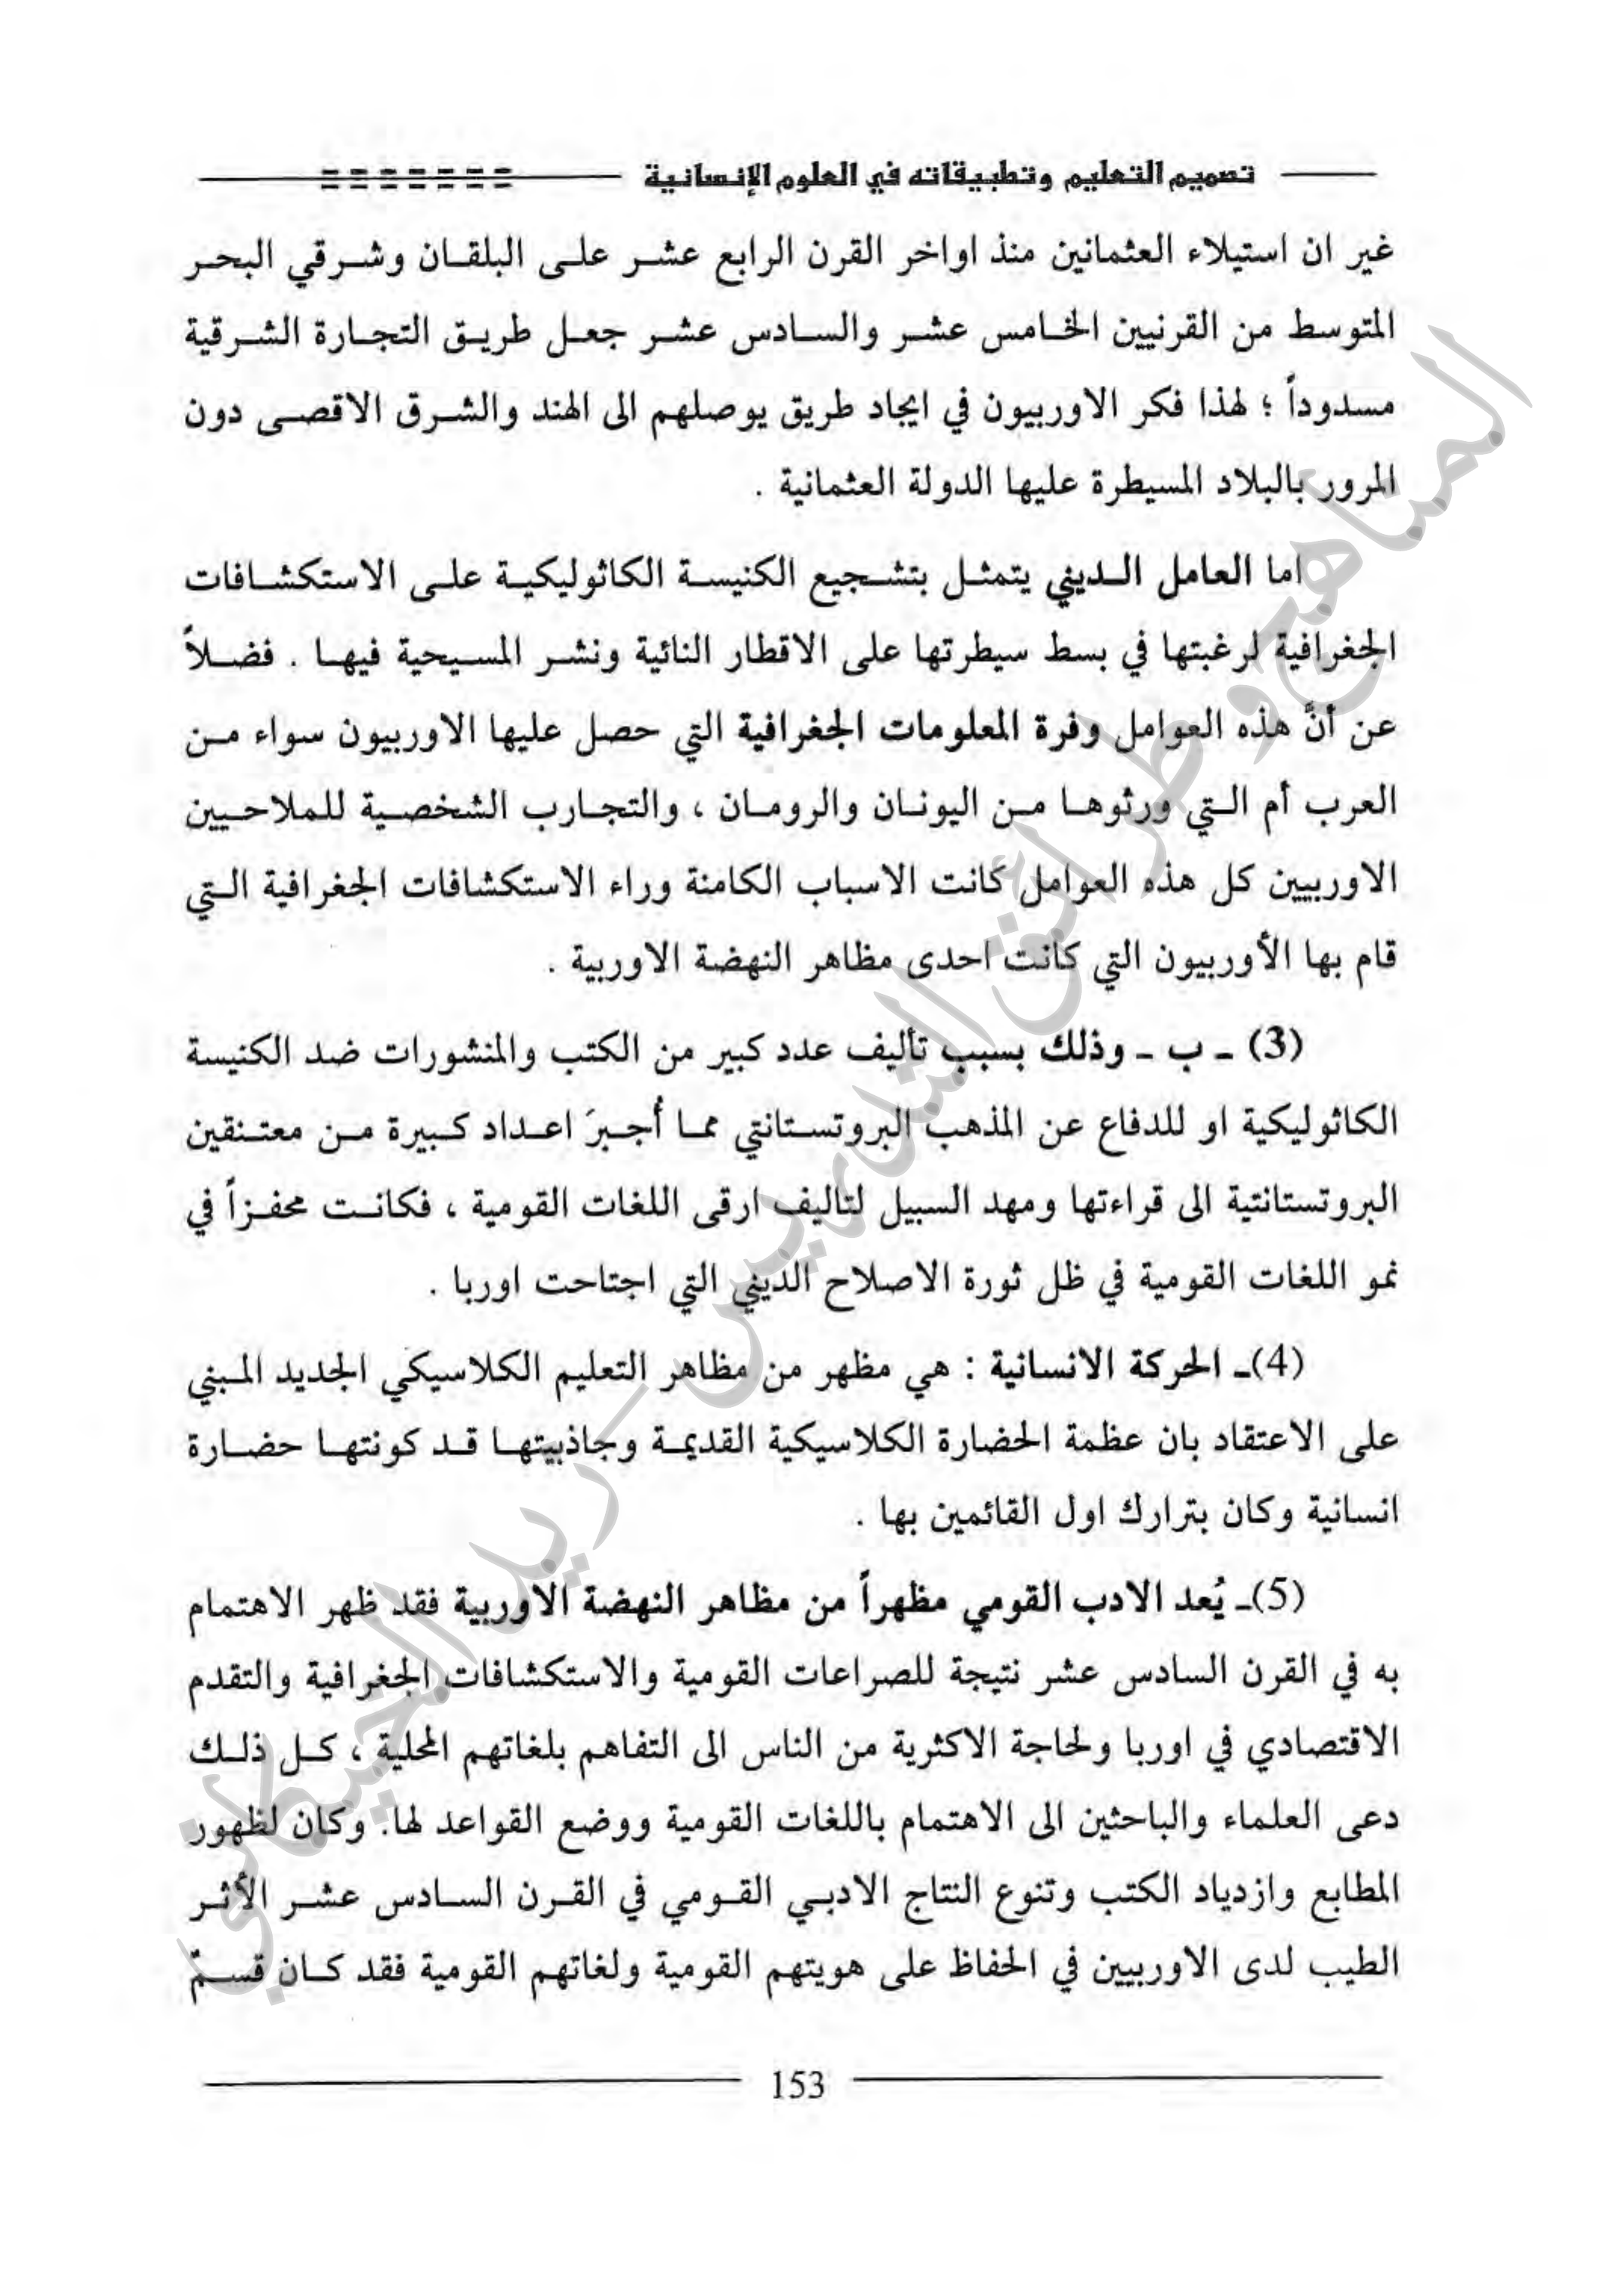 تصميم التعليم وتطبيقاته في العلوم الإنسانية
غير ان استيلاء العثمانين منذ اواخر القرن الرابع عشر على البلقان وشرقي البحر
المتوسط من القرنيين الخامس عشر والسادس عشر جعل طريق التجارة الشرقية
مسدوداً ؛ لهذا فكر الاوربيون في ايجاد طريق يوصلهم الى الهند والشرق الاقصى دون
المرور بالبلاد المسيطرة عليها الدولة العثمانية .
اما العامل الديني يتمثل بتشجيع الكنيسة الكاثوليكية على الاستكشافات
الجغرافية لرغبتها في بسط سيطرتها على الاقطار النائية ونشر المسيحية فيها . فضلاً
عن أنَّ هذه العوامل وفرة المعلومات الجغرافية التي حصل عليها الاوربيون سواء من
العرب أم التي ورثوها من اليونان والرومان ، والتجارب الشخصية للملاحيين
الاوربيين كل هذه العوامل كانت الاسباب الكامنة وراء الاستكشافات الجغرافية التي
قام بها الأوربيون التي كانت احدى مظاهر النهضة الاوربية .
(3) ـ ب ـ وذلك بسبب تأليف عدد كبير من الكتب والمنشورات ضد الكنيسة
الكاثوليكية او للدفاع عن المذهب البروتستانتي مما أُجبرَ اعداد كبيرة من معتنقين
البروتستانتية الى قراءتها ومهد السبيل لتاليف ارقى اللغات القومية ، فكانت محفزاً في
نمو اللغات القومية في ظل ثورة الاصلاح الديني التي اجتاحت اوربا .
(4)ـ الحركة الانسانية : هي مظهر من مظاهر التعليم الكلاسيكي الجديد المبني
على الاعتقاد بان عظمة الحضارة الكلاسيكية القديمة وجاذبيتها قد كونتها حضارة
انسانية وكان بترارك اول القائمين بها .
(5)ـ يُعد الادب القومي مظهراً من مظاهر النهضة الاوربية فقد ظهر الاهتمام
به في القرن السادس عشر نتيجة للصراعات القومية والاستكشافات الجغرافية والتقدم
الاقتصادي في اوربا ولحاجة الاكثرية من الناس الى التفاهم بلغاتهم المحلية ، كل ذلك
دعى العلماء والباحثين الى الاهتمام باللغات القومية ووضع القواعد لها. وكان لظهور
المطابع وازدياد الكتب وتنوع النتاج الادبي القومي في القرن السادس عشر الأثر
الطيب لدى الاوربيين في الحفاظ على هويتهم القومية ولغاتهم القومية فقد كان قسمٌ
153
المناهج وطرائق التدريس –